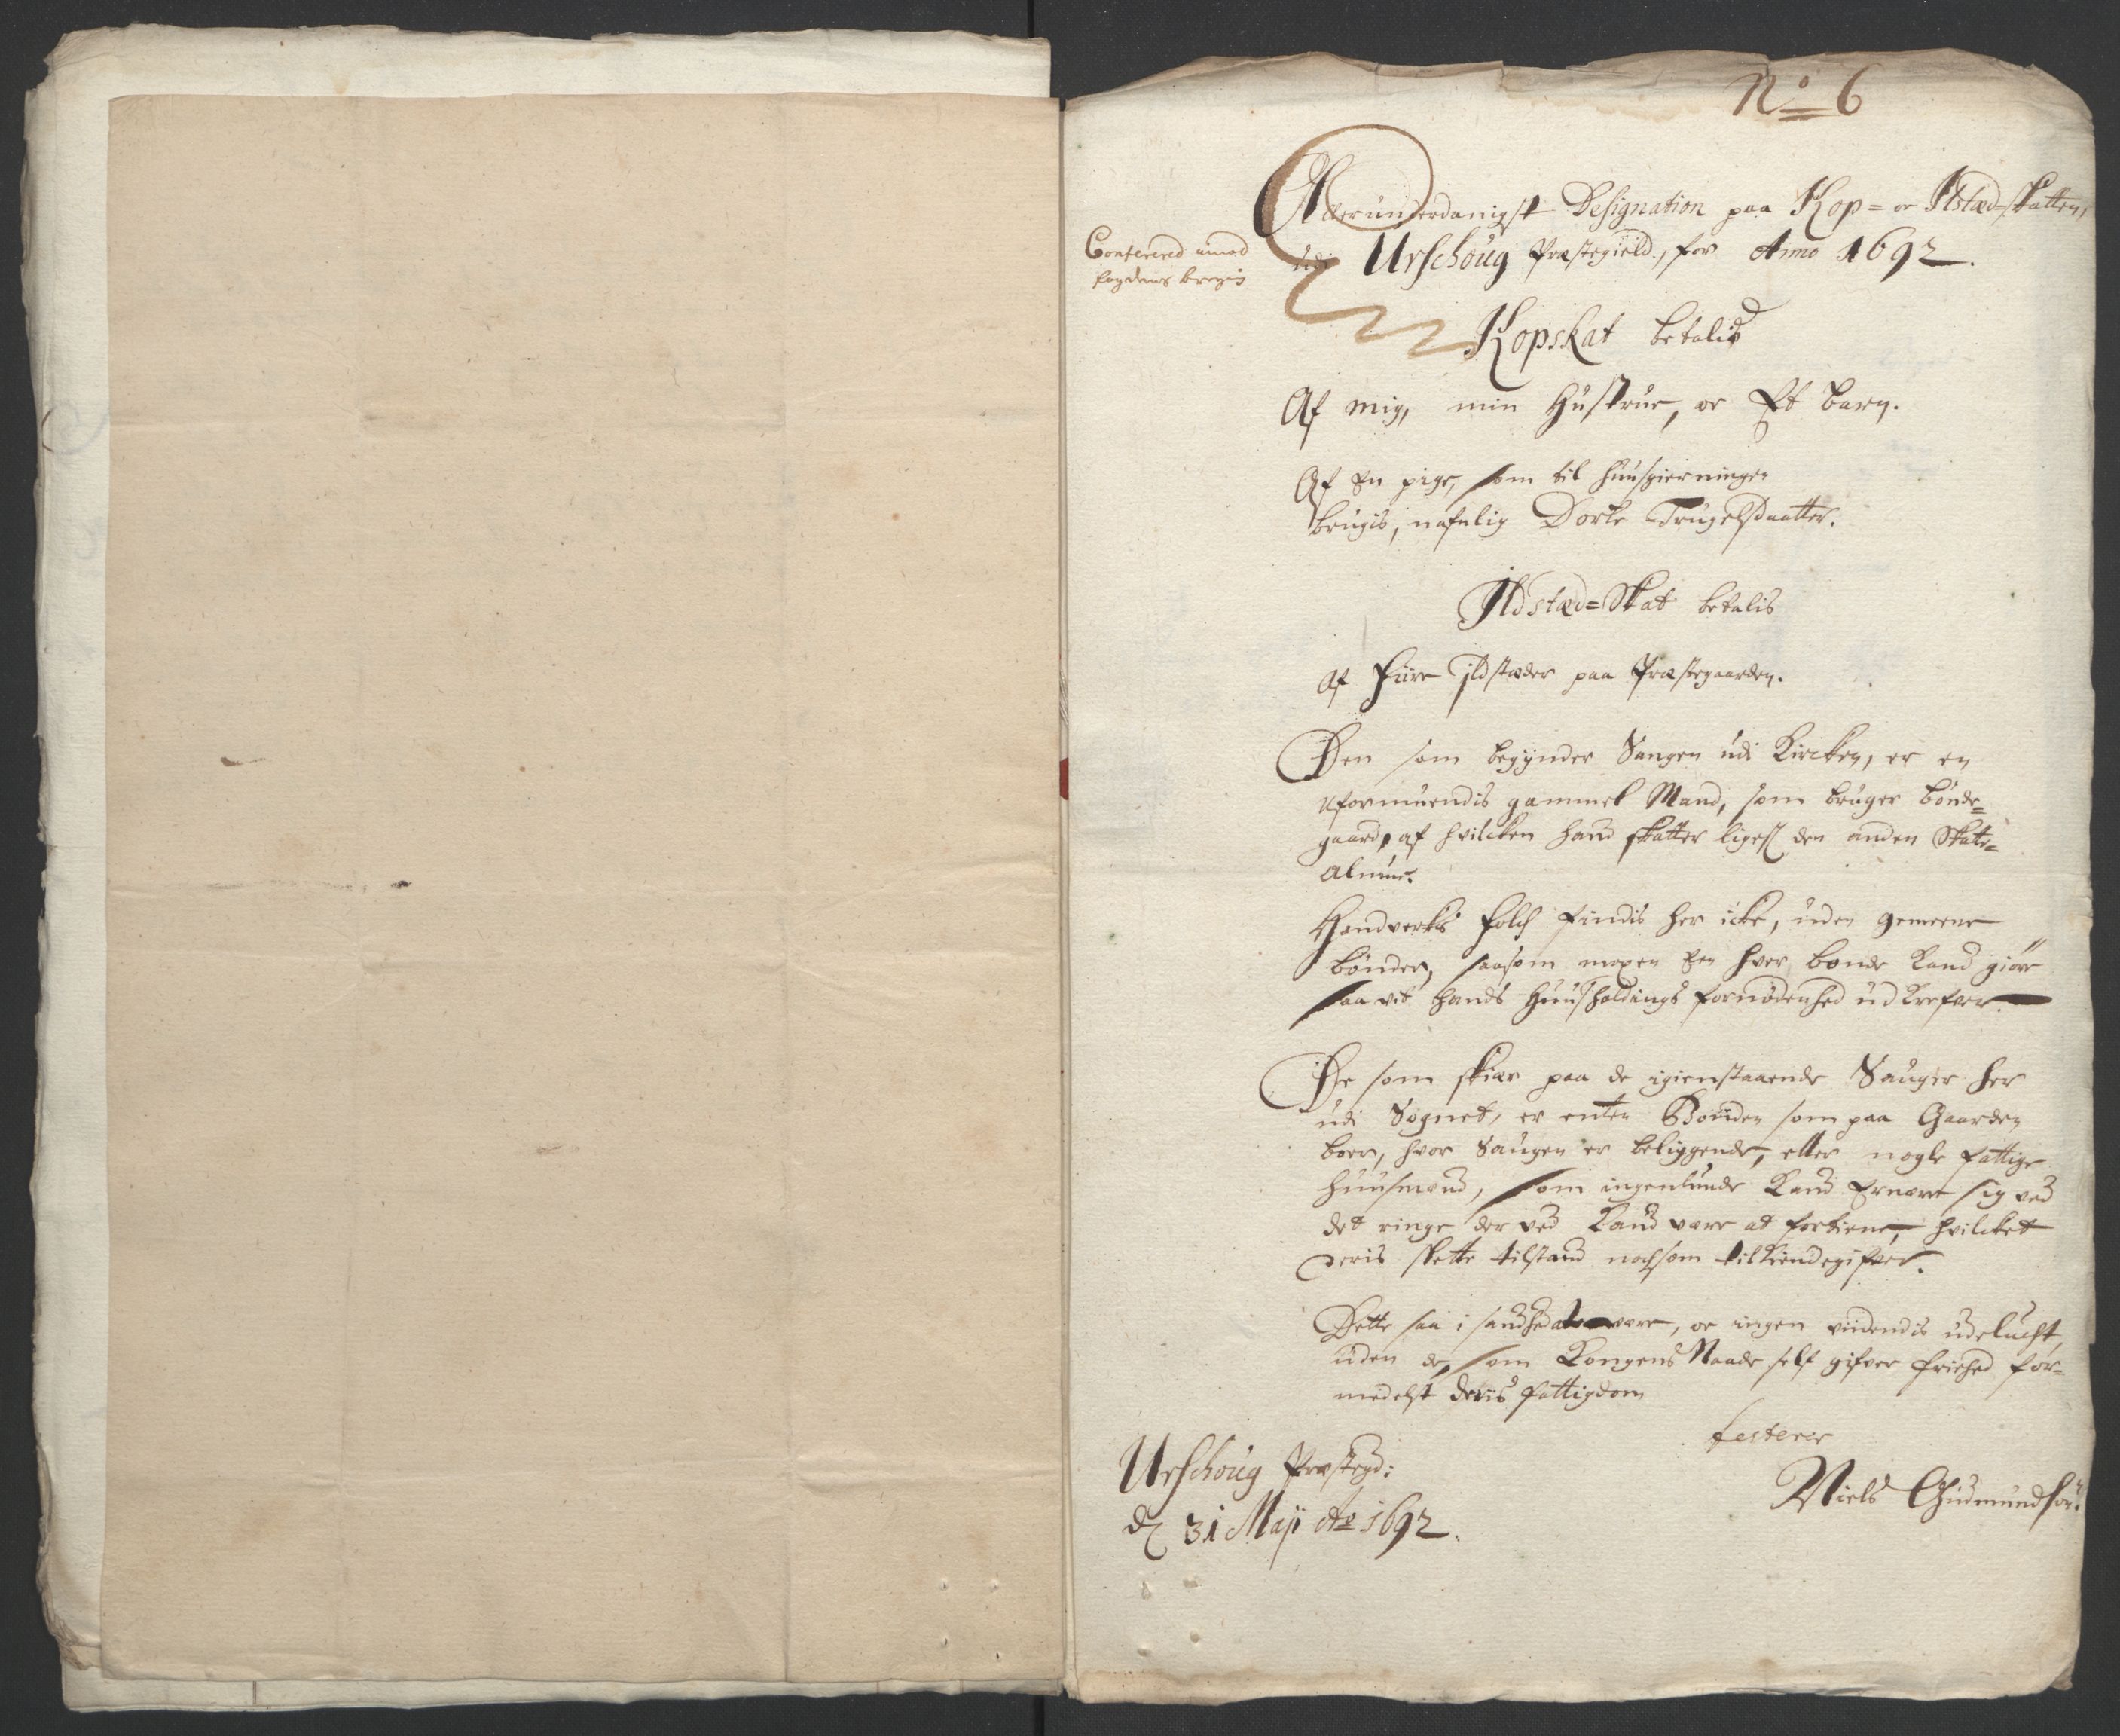 No 6
Allerunderdanigst Designation paa Kop= oc Ilstæd=skatten,
udi Urschoug Præstegield, for Anno 1692.
Conferered imod
fogdens
Kopskat betalis
Af mig, min Hustrue, oc Et barn.
Af En pige, som til huusgierningen
brugis, nafnlig Dorte Trugelsdaatter.
Ildstæd=Skat betalis
Af Fiire Ildstæder paa Præstegaarden.
Den som begynder Sangen udi Kircken, er en
uformuendis gammel Mand, som bruger bonde=
gaard, af hvilcken hand skatter ligesom den anden Skatte=
Almue.
Handverks folch findis her icke, uden gemeene
bønder, saasom en hver bonde kand giøre
saa vit hands Huusholdings fornødenhed udkrefver.
De som skiær paa de igienstaaende Sauger her
udi Sognet, er enten Bonden som paa Gaarden
boer, hvor Saugen er beliggende, eller nogle fattige
huusmænd, som ingenlunde kand ernære sig ved
det ringe der ved kand være at fortiene, hvilcket
deris slette tilstand nochsom tilkiendegifver.
Dette saa i sandhed at være, oc ingen videndis udelucht,
uden de, som Kongens Naade self gifver friehed for=
medelst deris fattigdom
testerer
Urschoug Præstegd:
d 31 Maji Ao 1692.
Niels Gudmundsøn.